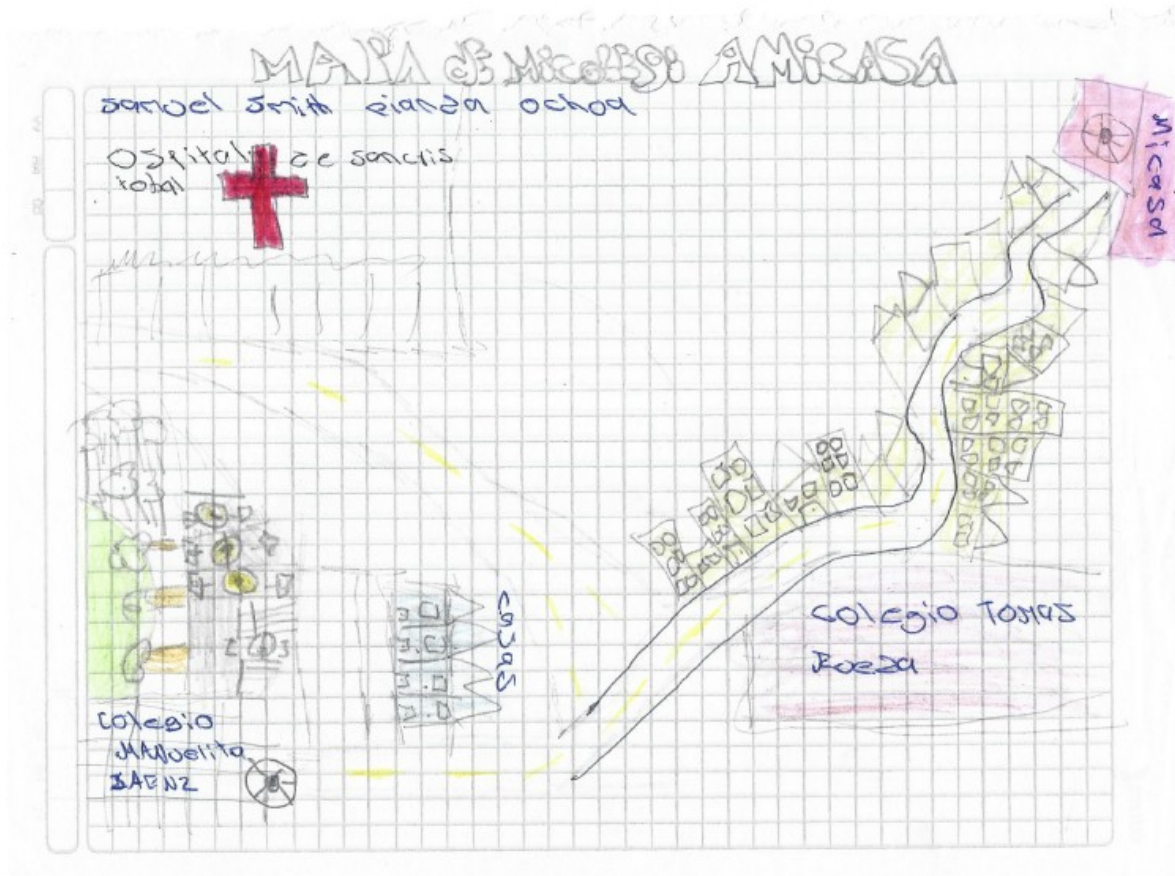 MAPA dE MicolEgi AMiCASA
samuel smith pianza ochoa
Ospital de sancris
tobal
Micasa
casas
colegio TOMAS
Rueza
colegio
MANuelita
SAENZ